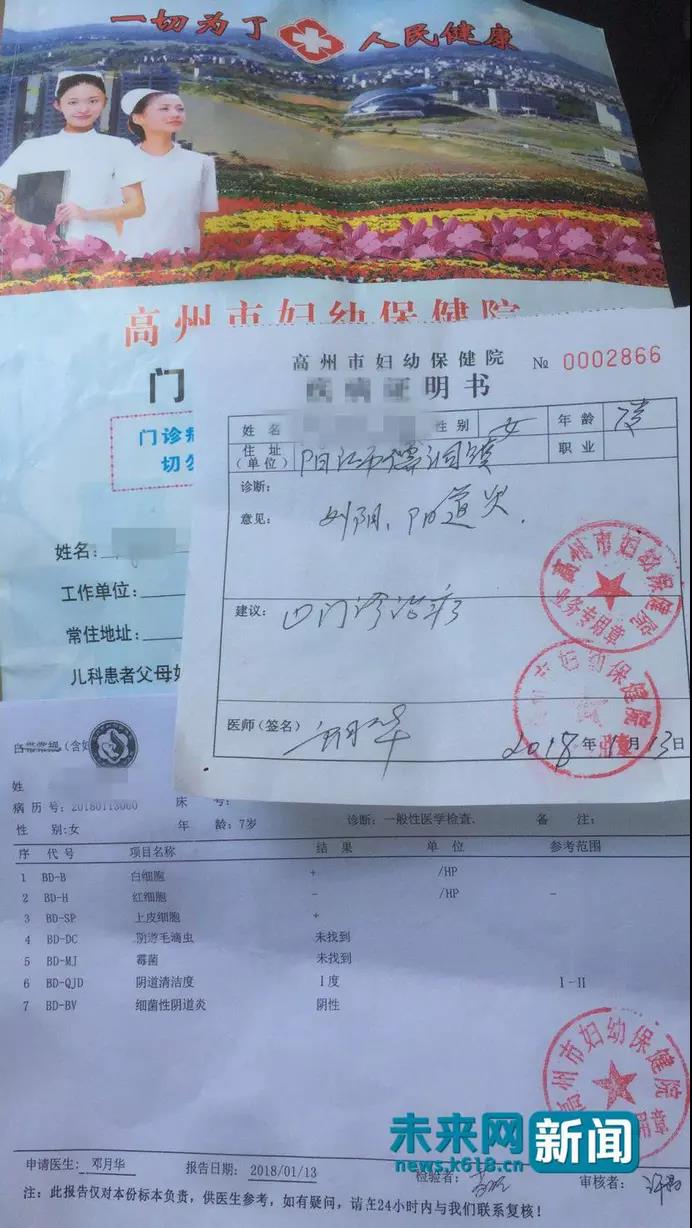 一切为了 人民健康
高州市妇幼保健院
门
门诊病
切勿
姓名:
工作单位:
常住地址:
儿科患者父母姓
高州市妇幼保健院
№ 0002866
疾病证明书
姓名 性别 女 年龄
住址(单位) 阳江市儒洞镇 职业
诊断:
意见: 外阴、阴道炎.
建议: 门诊治疗
高州市妇幼保健院
业务专用章
医师(签名)
2018年1月13日
高州市妇幼保健院
白带常规(含
姓
病历号: 20180113060 床号:
性别:女 年龄:7岁 诊断:一般性医学检查. 备注:
序 代号 项目名称 结果 单位 参考范围
1 BD-B 白细胞 + /HP
2 BD-H 红细胞 - /HP -
3 BD-SP 上皮细胞 +
4 BD-DC 阴道毛滴虫 未找到
5 BD-MJ 霉菌 未找到
6 BD-QJD 阴道清洁度 I度 I-II
7 BD-BV 细菌性阴道炎 阴性
高州市妇幼保健院
未来网 新闻
news.k618.cn
申请医生: 邓月华 报告日期: 2018/01/13 检验者: 审核者:
注: 此报告仅对本份标本负责, 供医生参考, 如有疑问, 请在24小时内与我们联系复核!